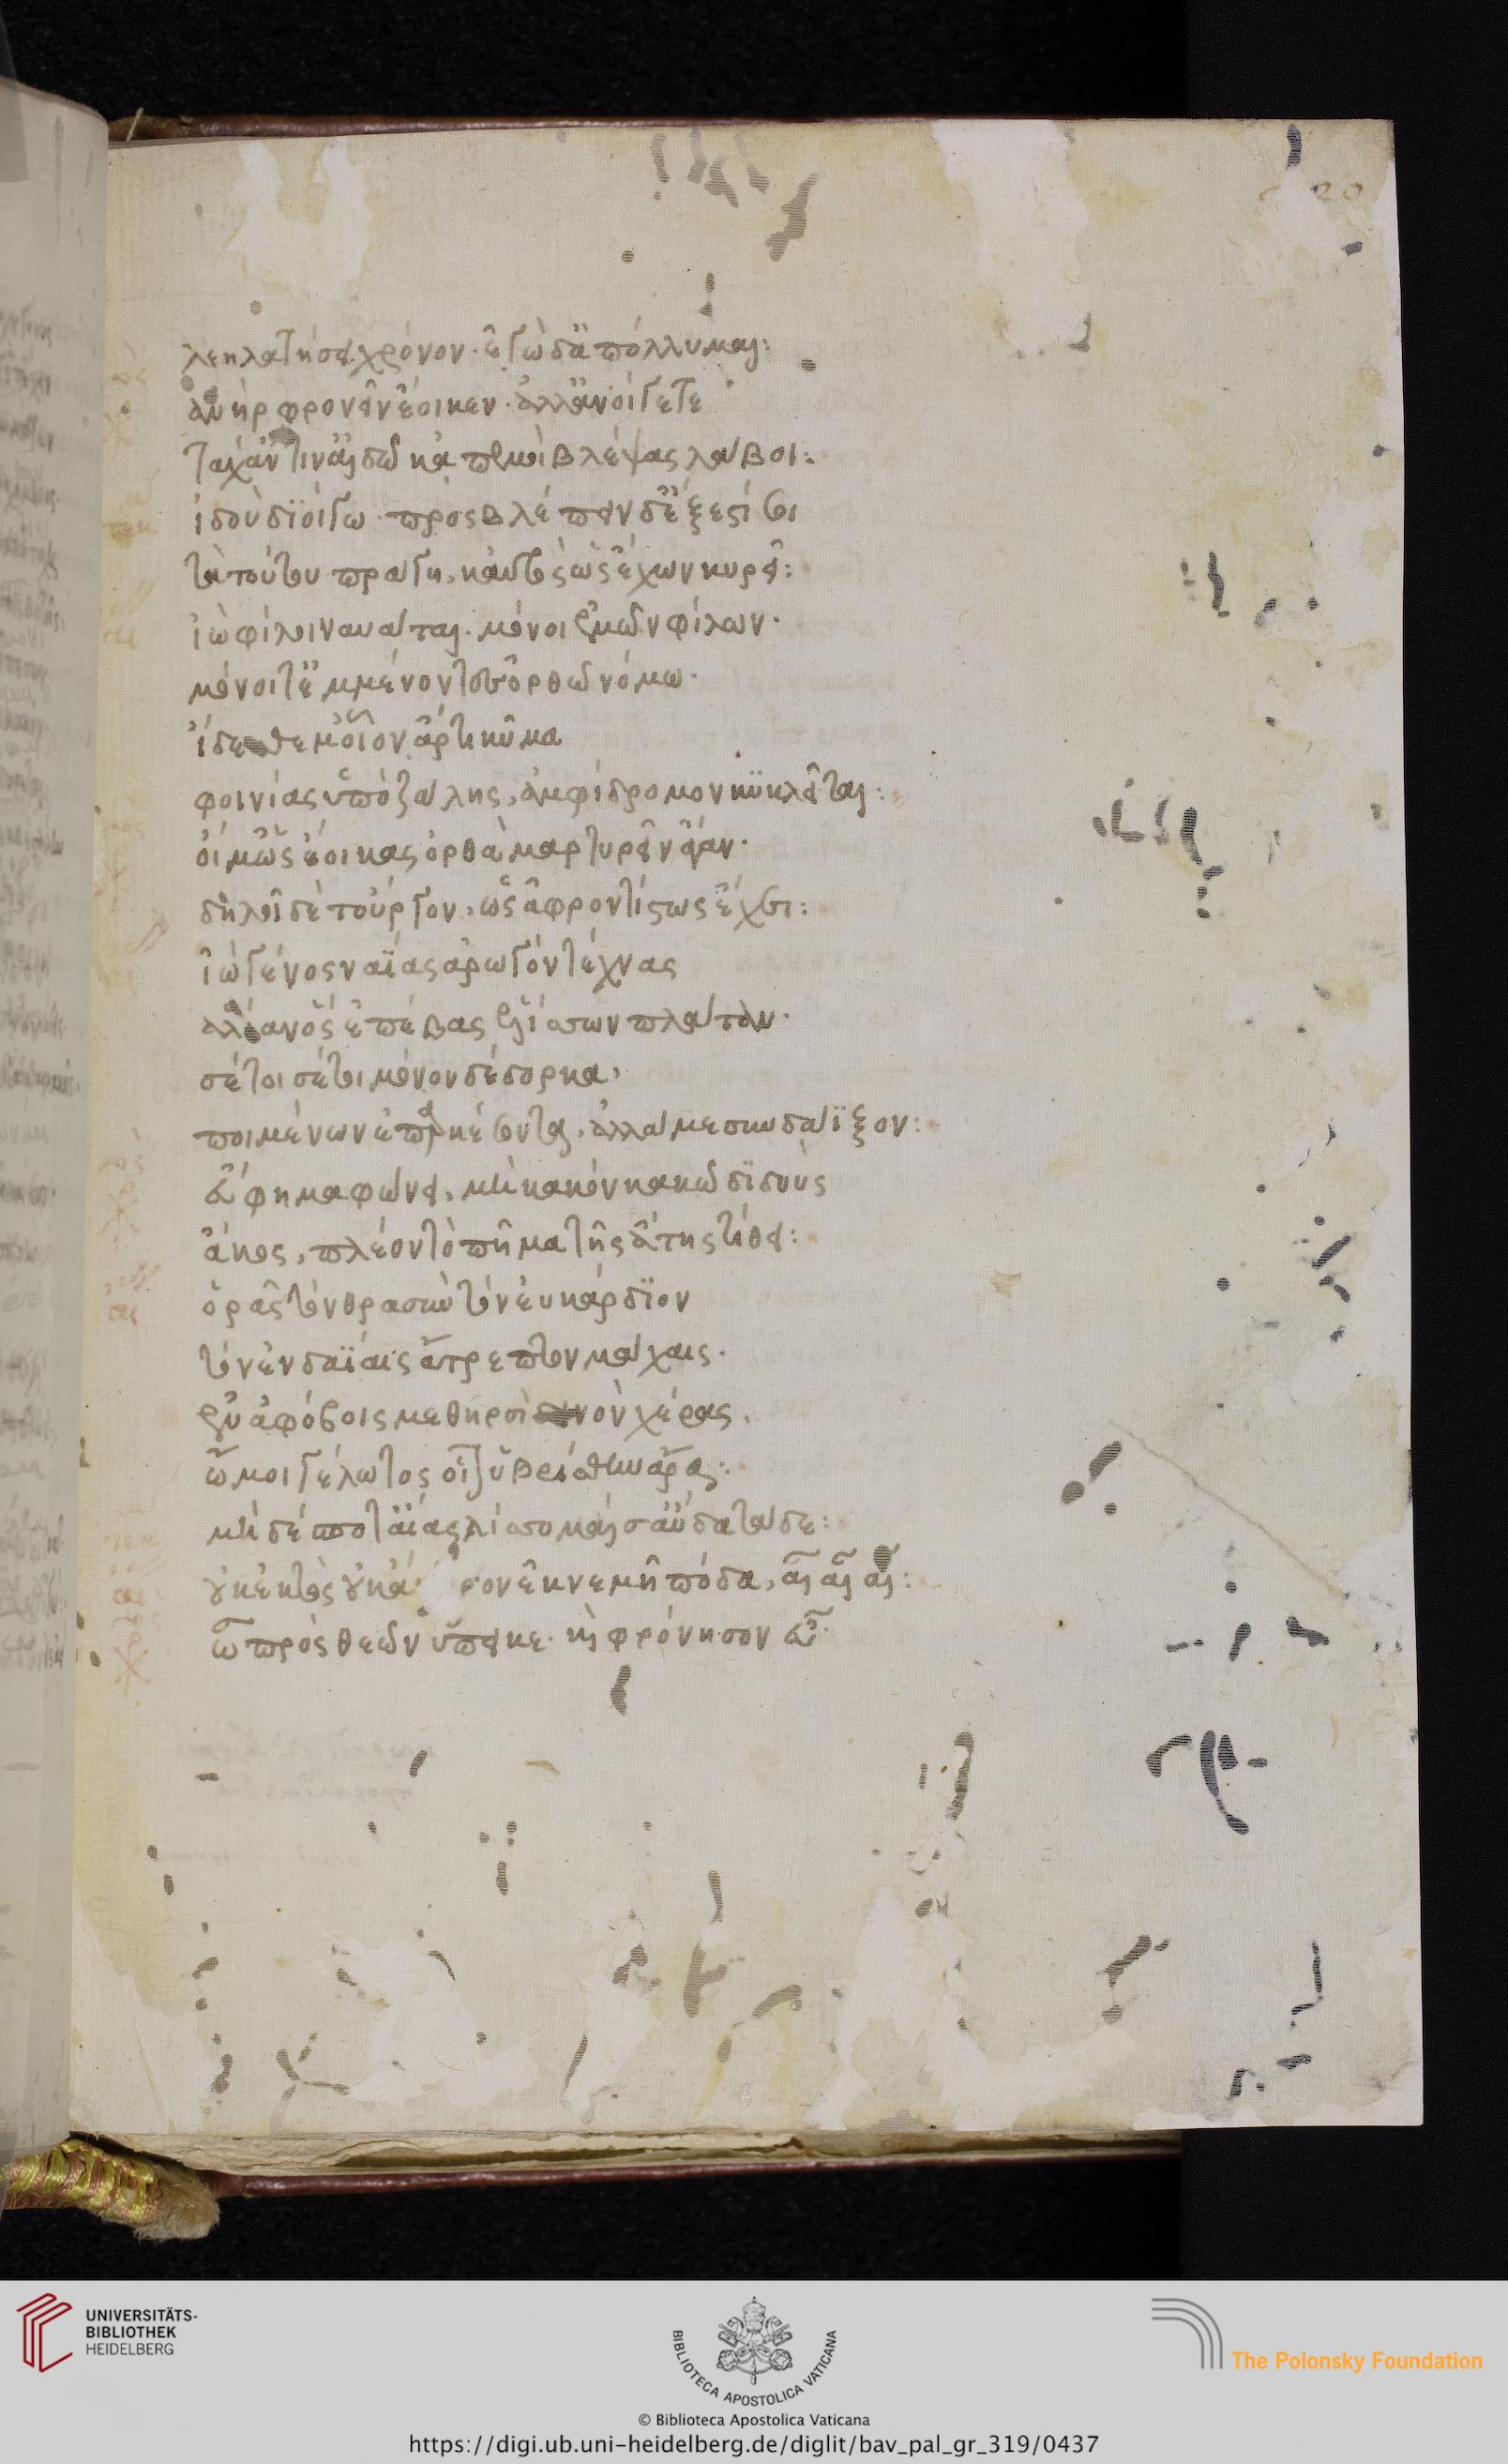 20
λεηλατήσει χρόνον· ἐγὼ δ' ἀπόλλυμαι:
ἀνὴρ φρονεῖν ἔοικεν· ἀλλ' ἀνοίγετε
τάχ' ἄν τιν' αἰδῶ κἀπ' ἐμοὶ βλέψας λάβοι:
ἰδοὺ διοίγω· προσβλέπειν δ' ἔξεστί σοι
τὰ τούτου πράγη, καὐτὸς ὡς ἔχων κυρεῖ:
ἰὼ φίλοι ναυάται· μόνοι ἐμῶν φίλων·
μόνοι τ' ἐμμένοντες ὀρθῶ νόμω·
ἴδεσθέ μ' οἷον ἄρτι κῦμα
φοινίας ὑπὸ ζάλης, ἀμφίδρομον κυκλεῖται:
οἴμ' ὡς ἔοικας ὀρθὰ μαρτυρεῖν ἄγαν·
δηλοῖ δὲ τοὔργον, ὡς ἀφροντίστως ἔχει:
ἰὼ γένος ναΐας ἀρωγὸν τέχνας
ἅλιαν ὃς ἐπέβας ἑλίσσων πλάταν·
σέ τοι σέ τοι μόνον δέδορκα,
ποιμένων ἐπαρκέσοντα, ἀλλά με συνδάϊξον:
εὔφημα φώνει, μὴ κακὸν κακῶ διδοὺς
ἄκος, πλέον τὸ πῆμα τῆς ἄτης τίθει:
ὁρᾶς τὸν θρασὺν τὸν εὐκάρδιον
τὸν ἐν δαΐοις ἄτρεστον μάχαις·
ἐν ἀφόβοις με θηρσὶ δεινὸν χέρας,
ὤμοι γέλωτος οἷον ὑβρίσθην ἄρα:
μὴ δέσποτ' αἴας λίσσομαί σ' αὔδα τάδε:
οὐκ ἐκτὸς οὐκ ἄ ρον ἐκνεμῆ πόδα, αἶ αἶ αἶ:
ὦ πρὸς θεῶν ὕπεικε· καὶ φρόνησον εὖ·
UNIVERSITÄTS-
BIBLIOTHEK
HEIDELBERG
BIBLIOTECA APOSTOLICA VATICANA
The Polonsky Foundation
© Biblioteca Apostolica Vaticana
https://digi.ub.uni-heidelberg.de/diglit/bav_pal_gr_319/0437